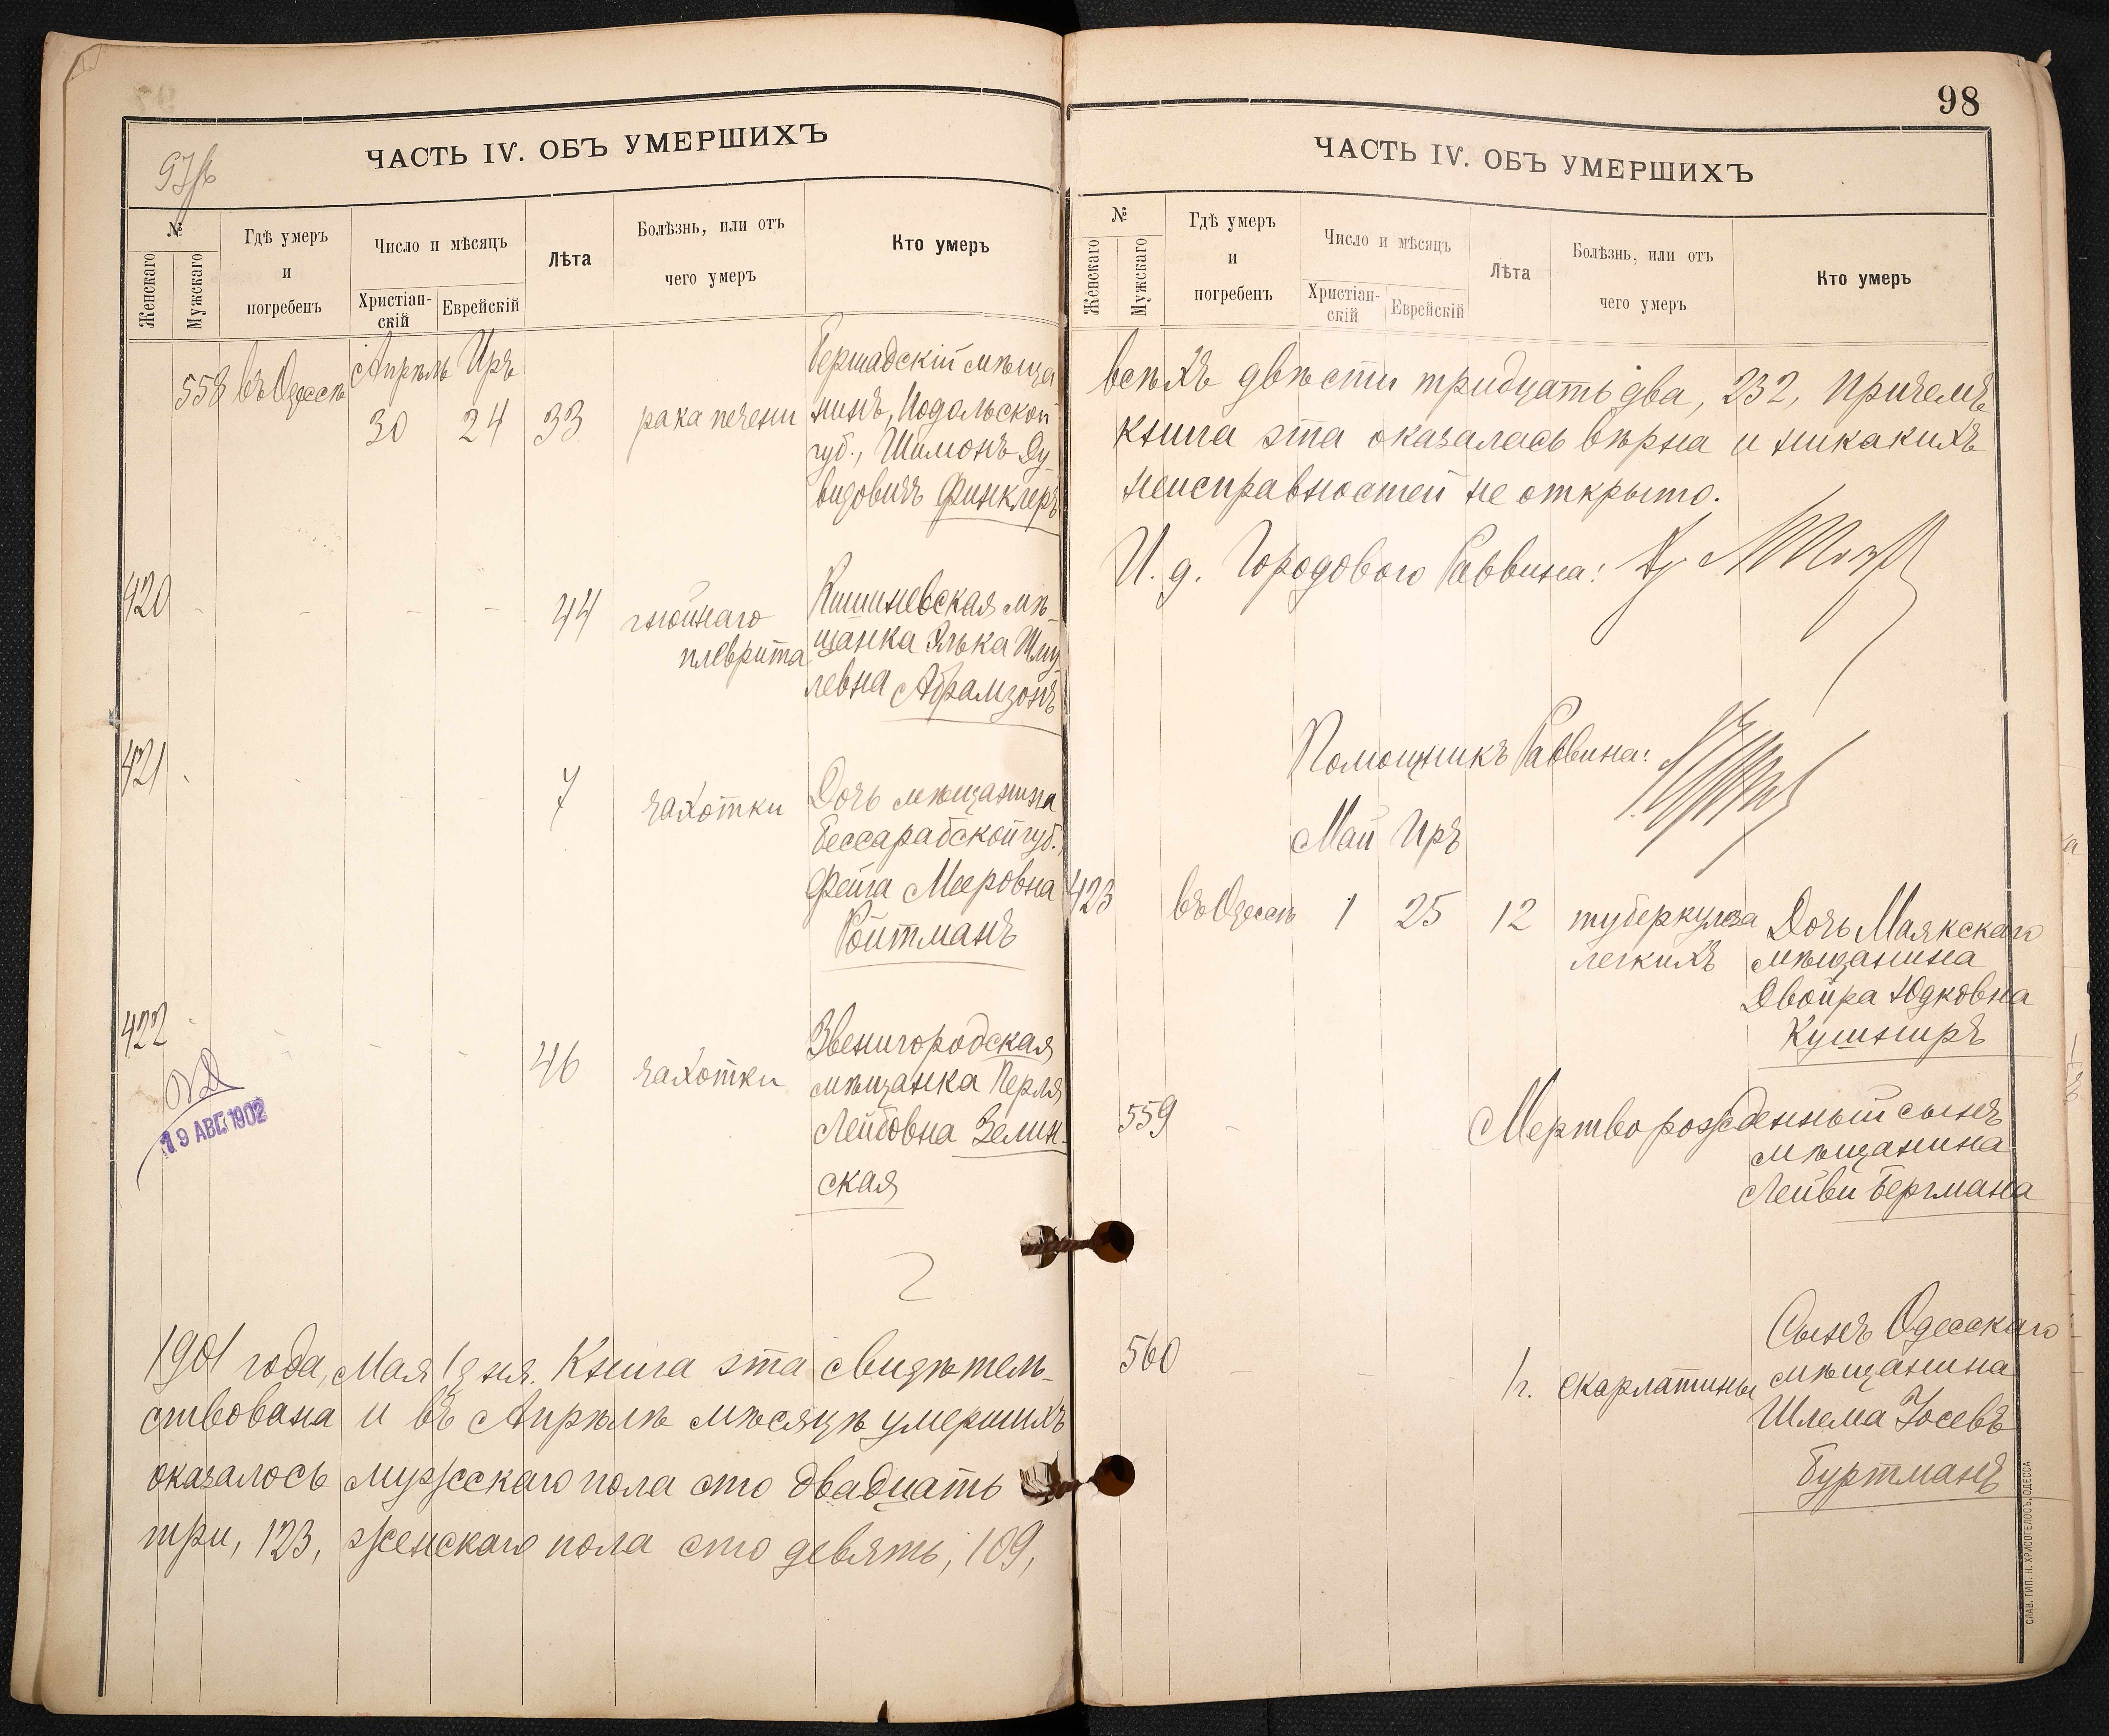 ЧАСТЬ IV. ОБЪ УМЕРШИХЪ
№
Женскаго
Мужскаго
Гдѣ умеръ
и
погребенъ
Число и мѣсяцъ
Христіан-
скій
Еврейскій
Лѣта
Болѣзнь, или отъ
чего умеръ
Кто умеръ
558 въ Одессѣ
Апрѣль Иръ
30 24 33 рака печени
Бершадскій мѣща
нинъ, Подольской
губ., Шимонъ Ду
видовичъ Финклеръ
420 - - - - 44 гнойнаго
плеврита
Кишиневская мѣ-
щанка Элька Шму
левна Абрамзонъ
421 7 чахотки
Дочь мѣщанина
Бессарабской губ.
Фейга Мееровна
Ройтманъ
422 - - - 46 чахотки
Звенигородская
мѣщанка Перля
Лейбовна Зелин-
ская
19 АВГ. 1902
1901 года, Мая 1 дня. Книга эта свидѣтель-
ствована и въ Апрѣлѣ мѣсяцѣ умершихъ
оказалось мужескаго пола сто двадцать
три, 123, женскаго пола сто девять, 109,
98
ЧАСТЬ IV. ОБЪ УМЕРШИХЪ
№
Женскаго
Мужскаго
Гдѣ умеръ
и
погребенъ
Число и мѣсяцъ
Христіан-
скій
Еврейскій
Лѣта
Болѣзнь, или отъ
чего умеръ
Кто умеръ
всѣхъ двѣсти тридцать два, 232, причемъ
книга эта оказалась вѣрна и никакихъ
неисправностей не открыто.
И. д. Городового Раввина:
Помощникъ Раввина:
Май Иръ
423 въ Одессѣ 1 25 12 туберкулеза
легкихъ
Дочь Маякскаго
мѣщанина
Двойра Юдковна
Кушниръ
559 - Мертворожденный сынъ
мѣщанина
Лейви Бергмана
560 - - - 1 г. скарлатины
Сынъ Одесскаго
мѣщанина
Шлема Іосевъ
Буртманъ
СЛАВ. ТИП. Н. ХРИСОГЕЛОСЪ, ОДЕССА